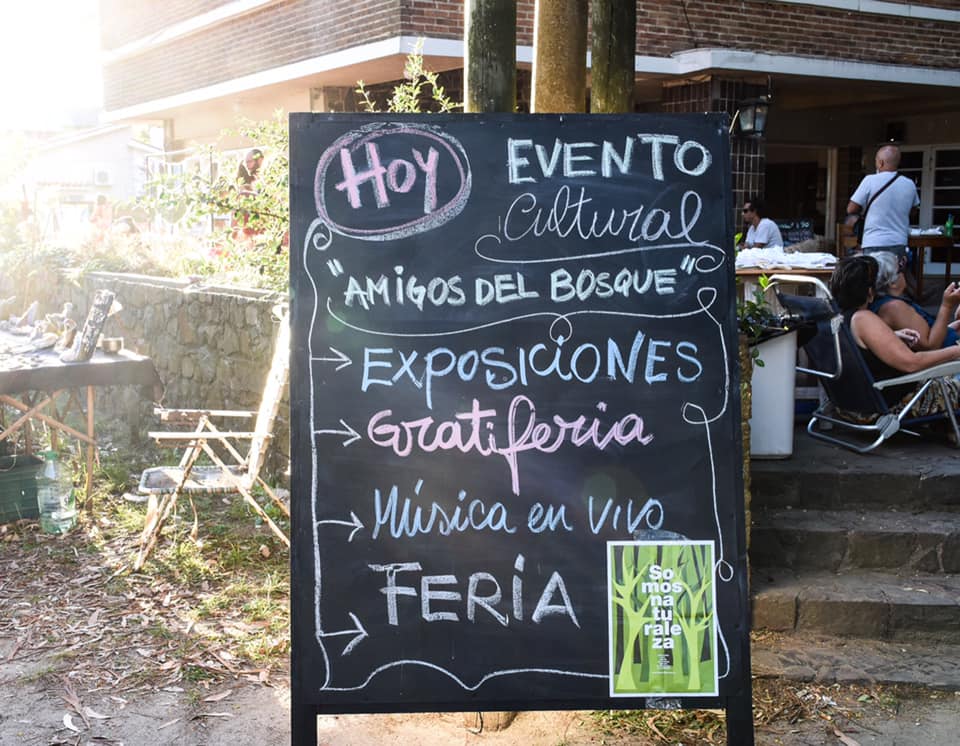 Hoy
EVENTO
Cultural
"AMIGOS DEL BOSQUE"
EXPOSICIONES
Gratiferia
Música en vivo
FERIA
So
mos
na
tu
rale
za